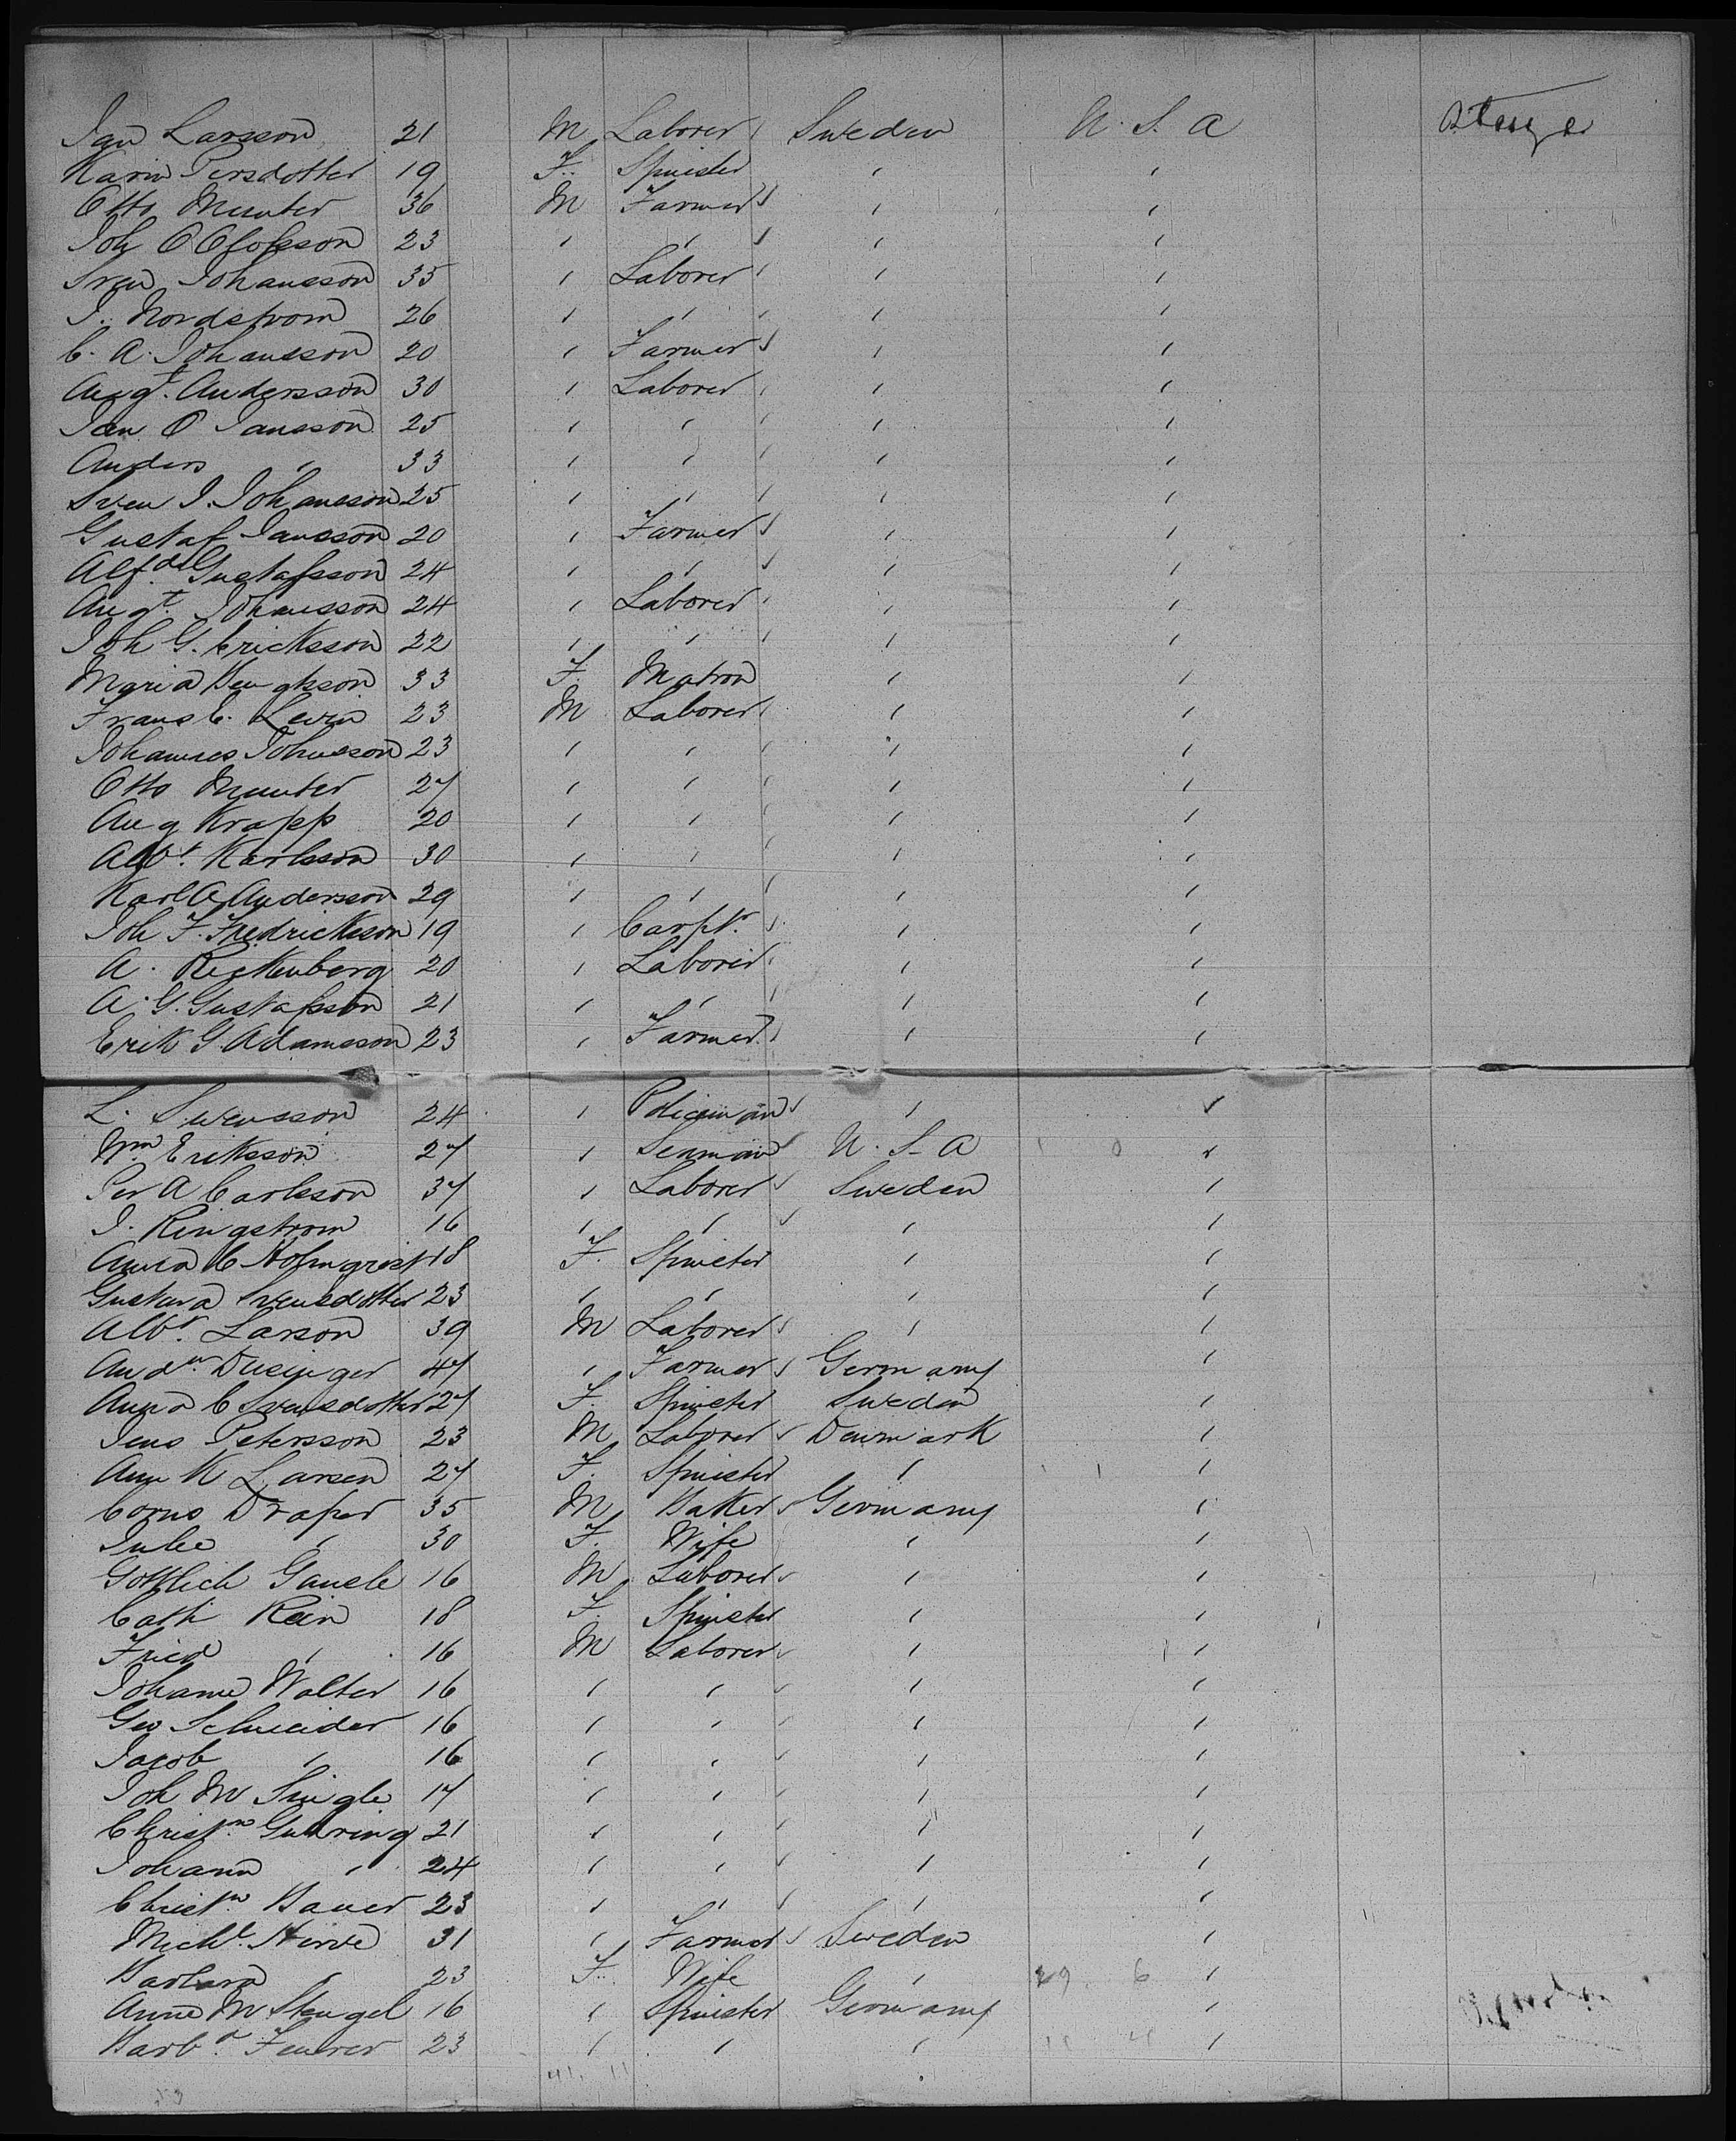 Jan Larsson 21 M Laborer Sweden U.S.A Steerage
Karin Persdotter 19 F. Spinster " "
Otto Munter 36 M Farmer " "
Joh O Olofsson 23 " " " "
Sven Johansson 35 " Laborer " "
J. Nordstrom 26 " " " "
C. A. Johansson 20 " Farmer " "
Augt. Andersson 30 " Laborer " "
Jan O Jansson 25 " " " "
Anders " 33 " " " "
Sven J. Johansson 25 " " " "
Gustaf Jansson 20 " Farmer " "
Alfd. Gustafsson 24 " " " "
Augt. Johansson 24 " Laborer " "
Joh G. Ericksson 22 " " " "
Maria Bengtsson 33 F. Matron " "
Frans E. Levin 23 M Laborer " "
Johannes Johnsson 23 " " " "
Otto Munter 27 " " " "
Aug Krapp 20 " " " "
Albt. Karlsson 30 " " " "
Karl A Andersson 29 " " " "
Joh F. Fredrickson 19 " Carptr. " "
A. Reckenberg 20 " Laborer " "
A. G. Gustafsson 21 " " " "
Erik G Adamsson 23 " Farmer " "
L. Swensson 24 " Policeman " "
Wm Eriksson 27 " Seaman U.S.A "
Per A Carlsson 37 " Laborer Sweden "
J. Ringstrom 16 " " " "
Anna C Holmgrist 18 F. Spinster " "
Gustava Svensdotter 23 " " " "
Albt. Larson 39 M Laborer " "
Andw. Dusinger 47 " Farmer Germany "
Anna C Svensdotter 27 F. Spinster Sweden "
Jens Petersson 23 M Laborer Denmark "
Ann K Larsen 27 F. Spinster " "
Corns Draper 35 M Baker Germany "
Julie " 30 F. Wife " "
Gottlich Gausle 16 M Laborer " "
Cath Rein 18 F. Spinster " "
Fried " 16 M Laborer " "
Johanne Walter 16 " " " "
Geo Schneider 16 " " " "
Jacob " 16 " " " "
Joh M Single 17 " " " "
Christn. Guhring 21 " " " "
Johann " 24 " " " "
Christn. Bauer 23 " " " "
Michl. 31 " Farmer Sweden "
Barbara " 23 F. Wife " 29 6 "
Anne M Stengel 16 " Spinster Germany "
Barba. Feurer 23 " " " "